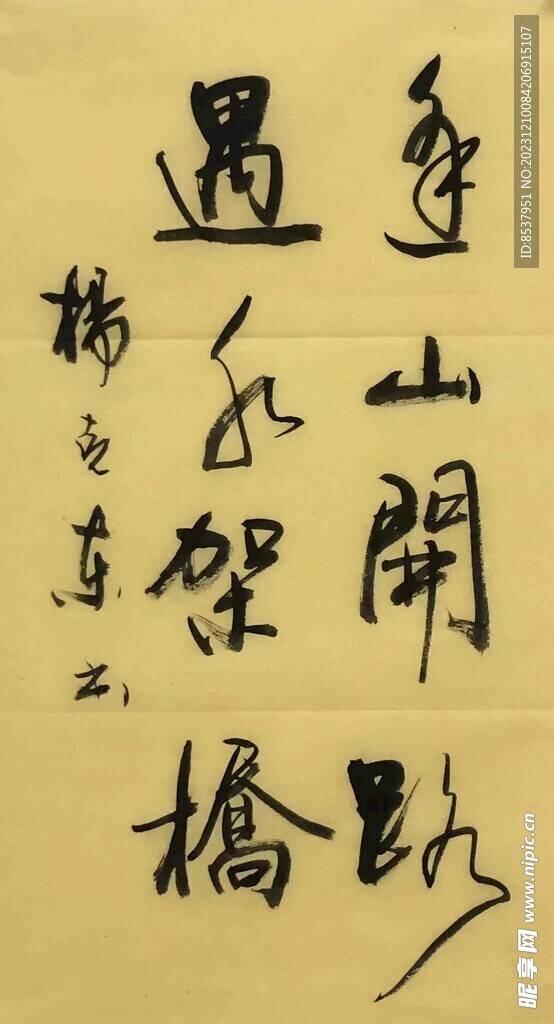 逢山開路
遇水架橋
楊克東书
ID:8537951 NO:20231210084206915107
昵享网 www.nipic.cn